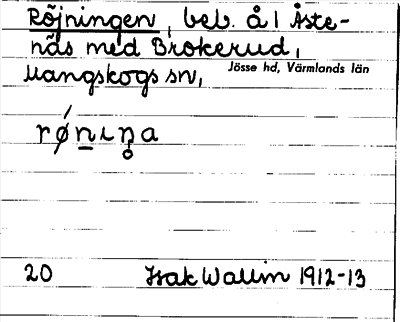 Röjningen, beb. å 1 Åste-
näs med Brokerud,
Mangskogs sn,
Jösse hd, Värmlands län
rǿn̲ɩn̥a
20 Isak Wallin 1912-13